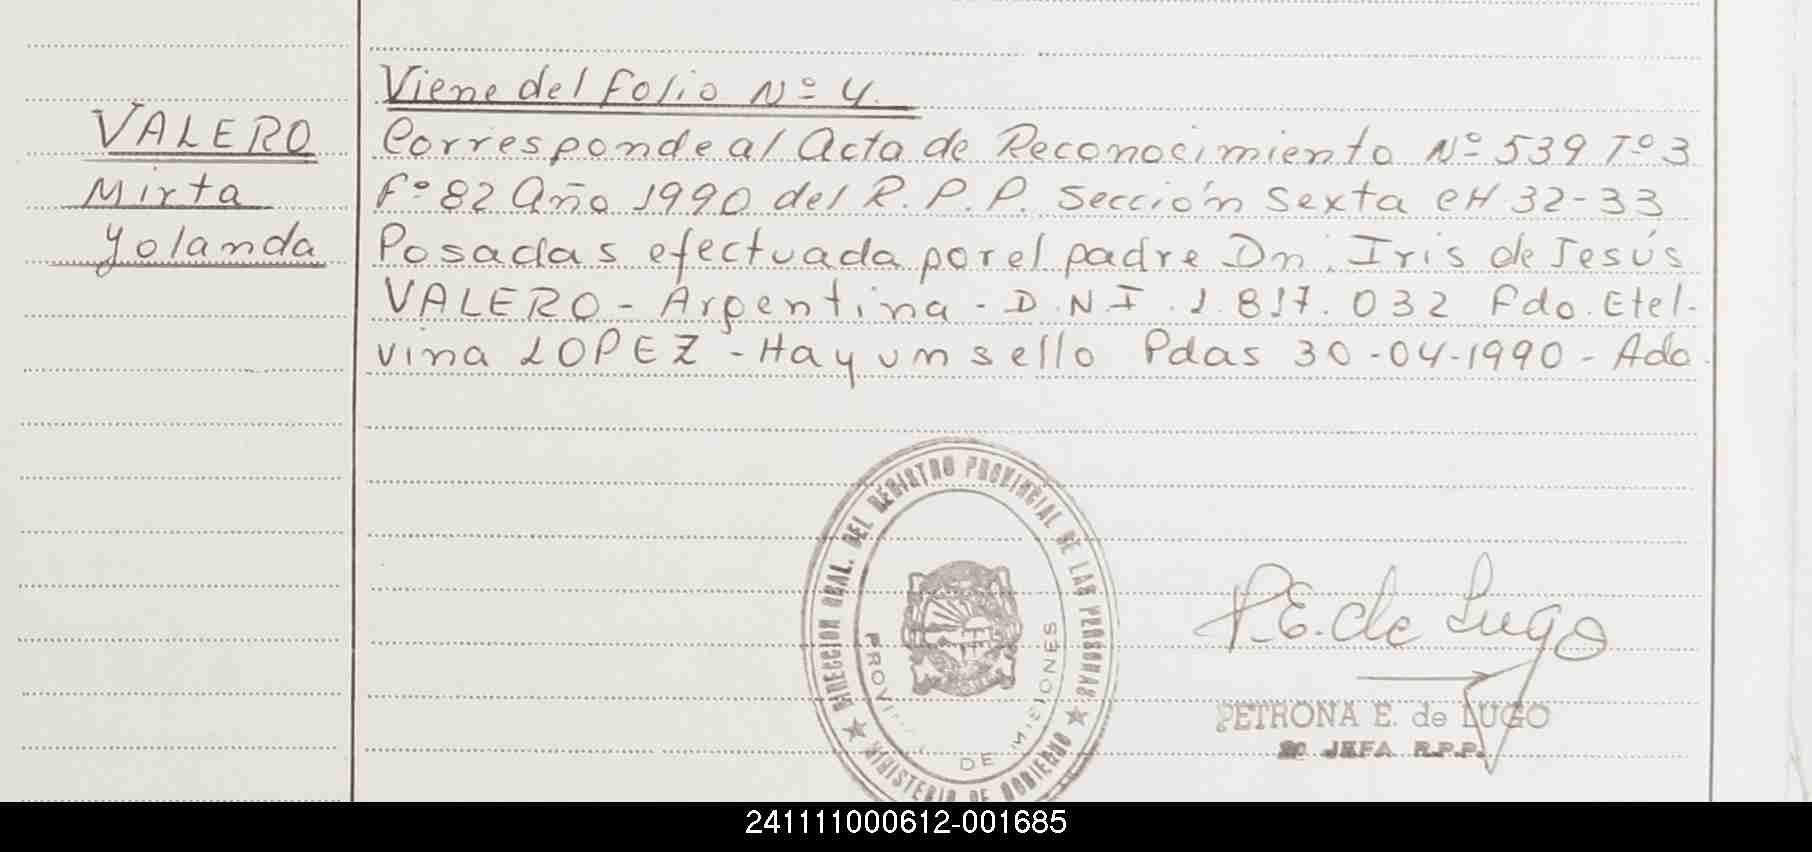 VALERO
Mirta
Yolanda
Viene del Folio Nº 4.
Corresponde al Acta de Reconocimiento Nº 539 Tº 3
Fº 82 Año 1990 del R. P. P. Sección Sexta CH 32-33
Posadas efectuada por el padre Dn. Iris de Jesús
VALERO - Argentina - D.N.I. 1.817.032 Fdo. Etel-
vina LOPEZ - Hay un sello Pdas 30-04-1990 - Ado.
DIRECCION GRAL. DEL REGISTRO PROVINCIAL DE LAS PERSONAS
MINISTERIO DE GOBIERNO
DE MISIONES
P.E. de Lugo
PETRONA E. de LUGO
JEFA R.P.P.
241111000612-001685